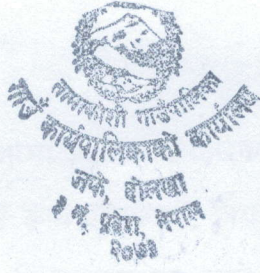 तामाकोशी गाउँपालिका
गाउँ कार्यपालिकाको कार्यालय
जफे, दोलखा
नं. प्रदेश, नेपाल
२०७३